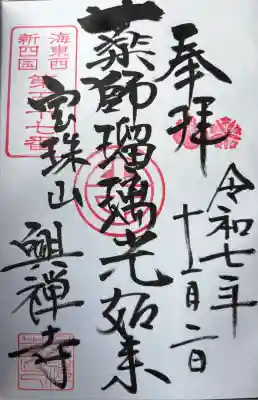 奉拝
令和七年
十一月二日
薬師瑠璃光如来
海東西
新四国
宝珠山
興禅寺